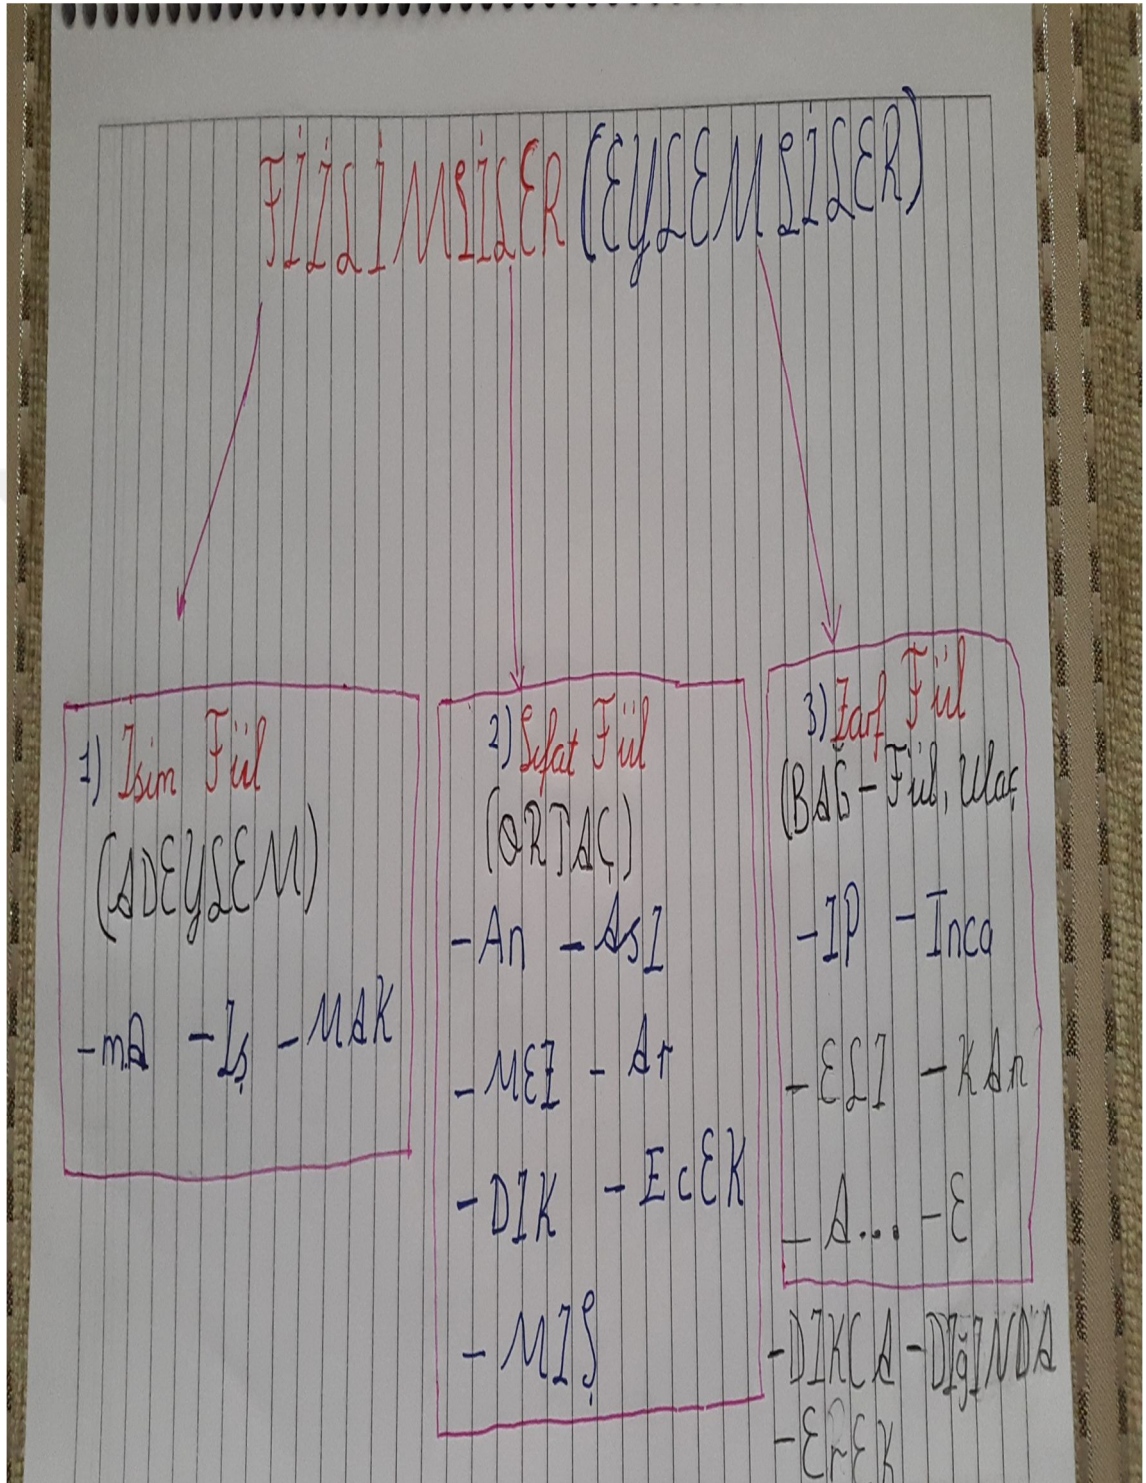 FİİLİMSİLER (EYLEMSİLER)
1) İsim Fiil
(ADEYLEM)
-mA -Iş -MAK
2) Sıfat Fiil
(ORTAÇ)
-An -AsI
-MEZ -Ar
-DIK -EcEK
-MIŞ
3) Zarf Fiil
(BAĞ-Fiil, Ulaç
-IP -Inca
-ELI -KAn
-A... -E
-DIKCA -DIğINDA
-ErEK